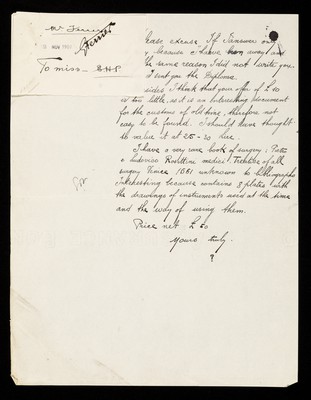 Mr Stenner
NOV 192
Stenner
To miss — GHP
Please excuse If I answer only
, because I have been away, and
the same reason I did not write you
I sent you the Diploma.
sides I think that your offer of £ 10
is too little, as it is an interesting document
for the customs of old time, therefore not
easy to be found. I should have thought
to value it at 25-30 lire.
I have a very rare book of surgery: Pietro
e Ludovico Rostinio medici Trattato di
surgery Venice 1561 unknown to bibliographs
Interesting because contains 8 plates with
the drawings of instruments used at the time
and the way of using them.
Price net £ 50
Yours truly.
?